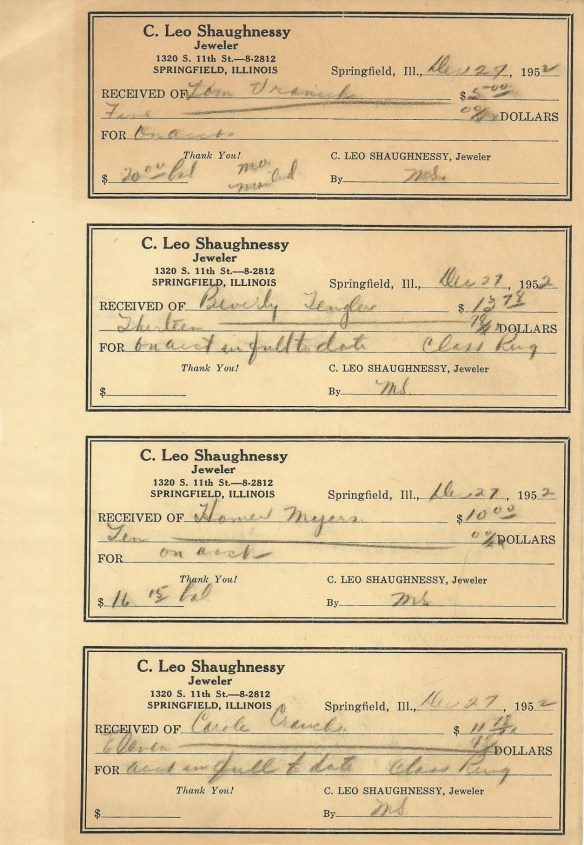 C. Leo Shaughnessy
Jeweler
1320 S. 11th St.—8-2812
SPRINGFIELD, ILLINOIS
Springfield, Ill., Dec 27, 1952
RECEIVED OF Tom $ 5.00
Five 00/xx DOLLARS
FOR On acct
Thank You! C. LEO SHAUGHNESSY, Jeweler
$ 20.00 bal By MS.
C. Leo Shaughnessy
Jeweler
1320 S. 11th St.—8-2812
SPRINGFIELD, ILLINOIS
Springfield, Ill., Dec 27, 1952
RECEIVED OF Beverly Tengler $ 13.78
Thirteen 78/xx DOLLARS
FOR on acct in full to date Class Ring
Thank You! C. LEO SHAUGHNESSY, Jeweler
$ By MS.
C. Leo Shaughnessy
Jeweler
1320 S. 11th St.—8-2812
SPRINGFIELD, ILLINOIS
Springfield, Ill., Dec 27, 1952
RECEIVED OF Homer Myers $ 10.00
Ten 00/xx DOLLARS
FOR on acct
Thank You! C. LEO SHAUGHNESSY, Jeweler
$ 16.15 bal By MS
C. Leo Shaughnessy
Jeweler
1320 S. 11th St.—8-2812
SPRINGFIELD, ILLINOIS
Springfield, Ill., Dec 27, 1952
RECEIVED OF Carole $ 11
Eleven DOLLARS
FOR acct in full to date Class Ring
Thank You! C. LEO SHAUGHNESSY, Jeweler
$ By MS.